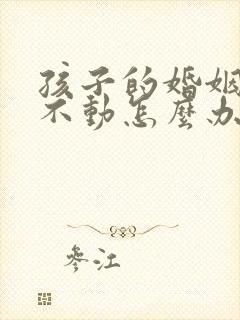 孩子的婚姻
不動怎麼办
參江